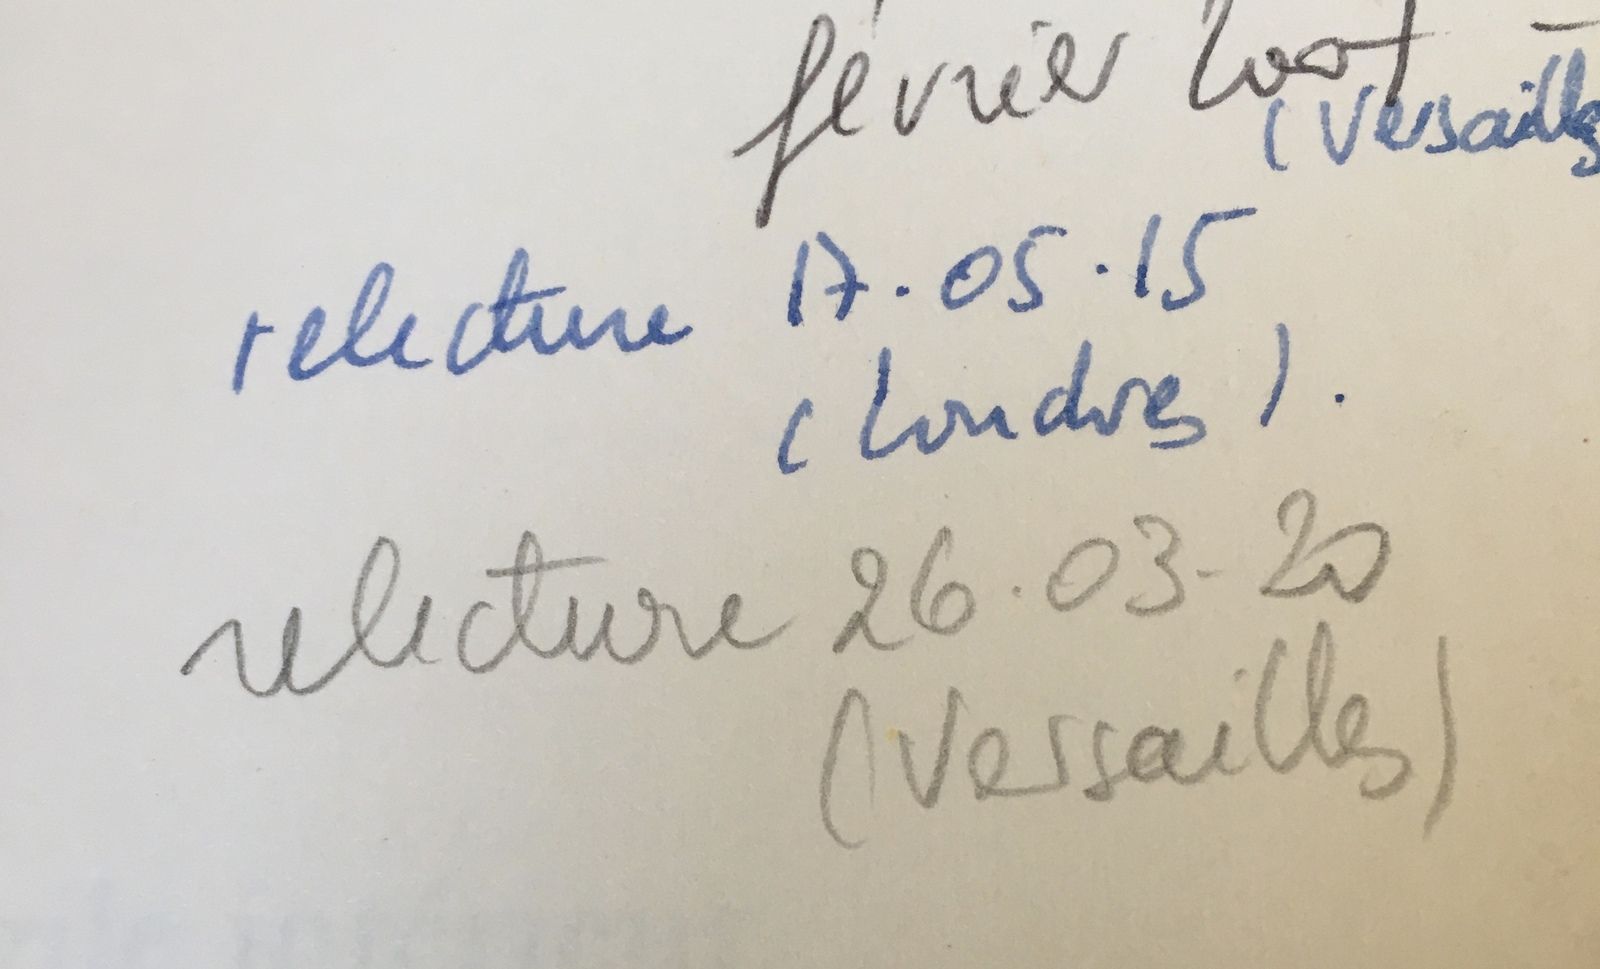 février 2007
(Versailles
relecture 17.05.15
(Londres).
relecture 26.03-20
(Versailles)